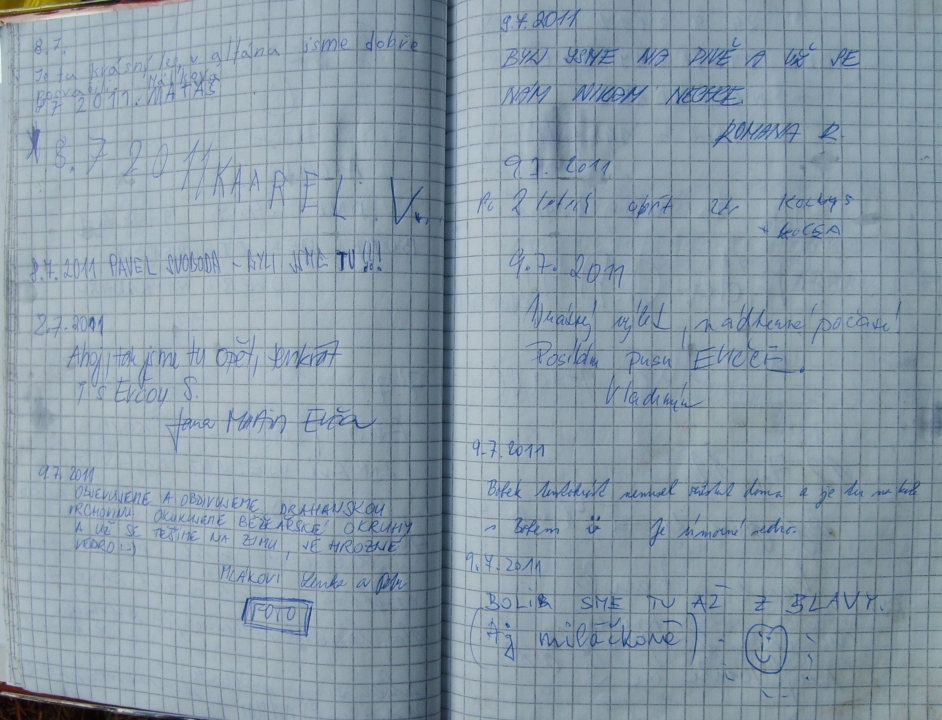 8.7.
Je tu krásný jsme dobře
97 2011 MATĚJ
8.7 2011 KAAREL V.
8.7.2011 PAVEL SVOBODA - BYLI JSME TU!!!
8.7.2011
Ahoj, tak jsme tu opět, tenkrát
i s Evčou S.
Jana Martin Evča
9.7.2011
OBJEVUJEME A OBDIVUJEME DRAHANSKOU
VRCHOVINU. OKUKUJEME BĚŽAŘSKÉ OKRUHY
A UŽ SE TĚŠÍME NA ZIMU, JE HROZNÉ
VEDRO :-)
MLAKOVI Lenka a Petr
FOTO
9.7.2011
BYLI JSME NA PIVĚ A UŽ SE
NÁM NIKAM NECHCE.
ROMANA R.
9.7. 2011
Po 2 letech opět zde
9.7.2011
Krásný výlet, nádherné počasí!
Posílám pusu EVIČCE.
Vladimír
9.7.2011
nemusel zůstat doma a je tu na kole
s Bobem Je úmorné vedro.
9.7.2011
BOLI SME TU AŽ Z BLAVY.
(Aj miláčkoné)